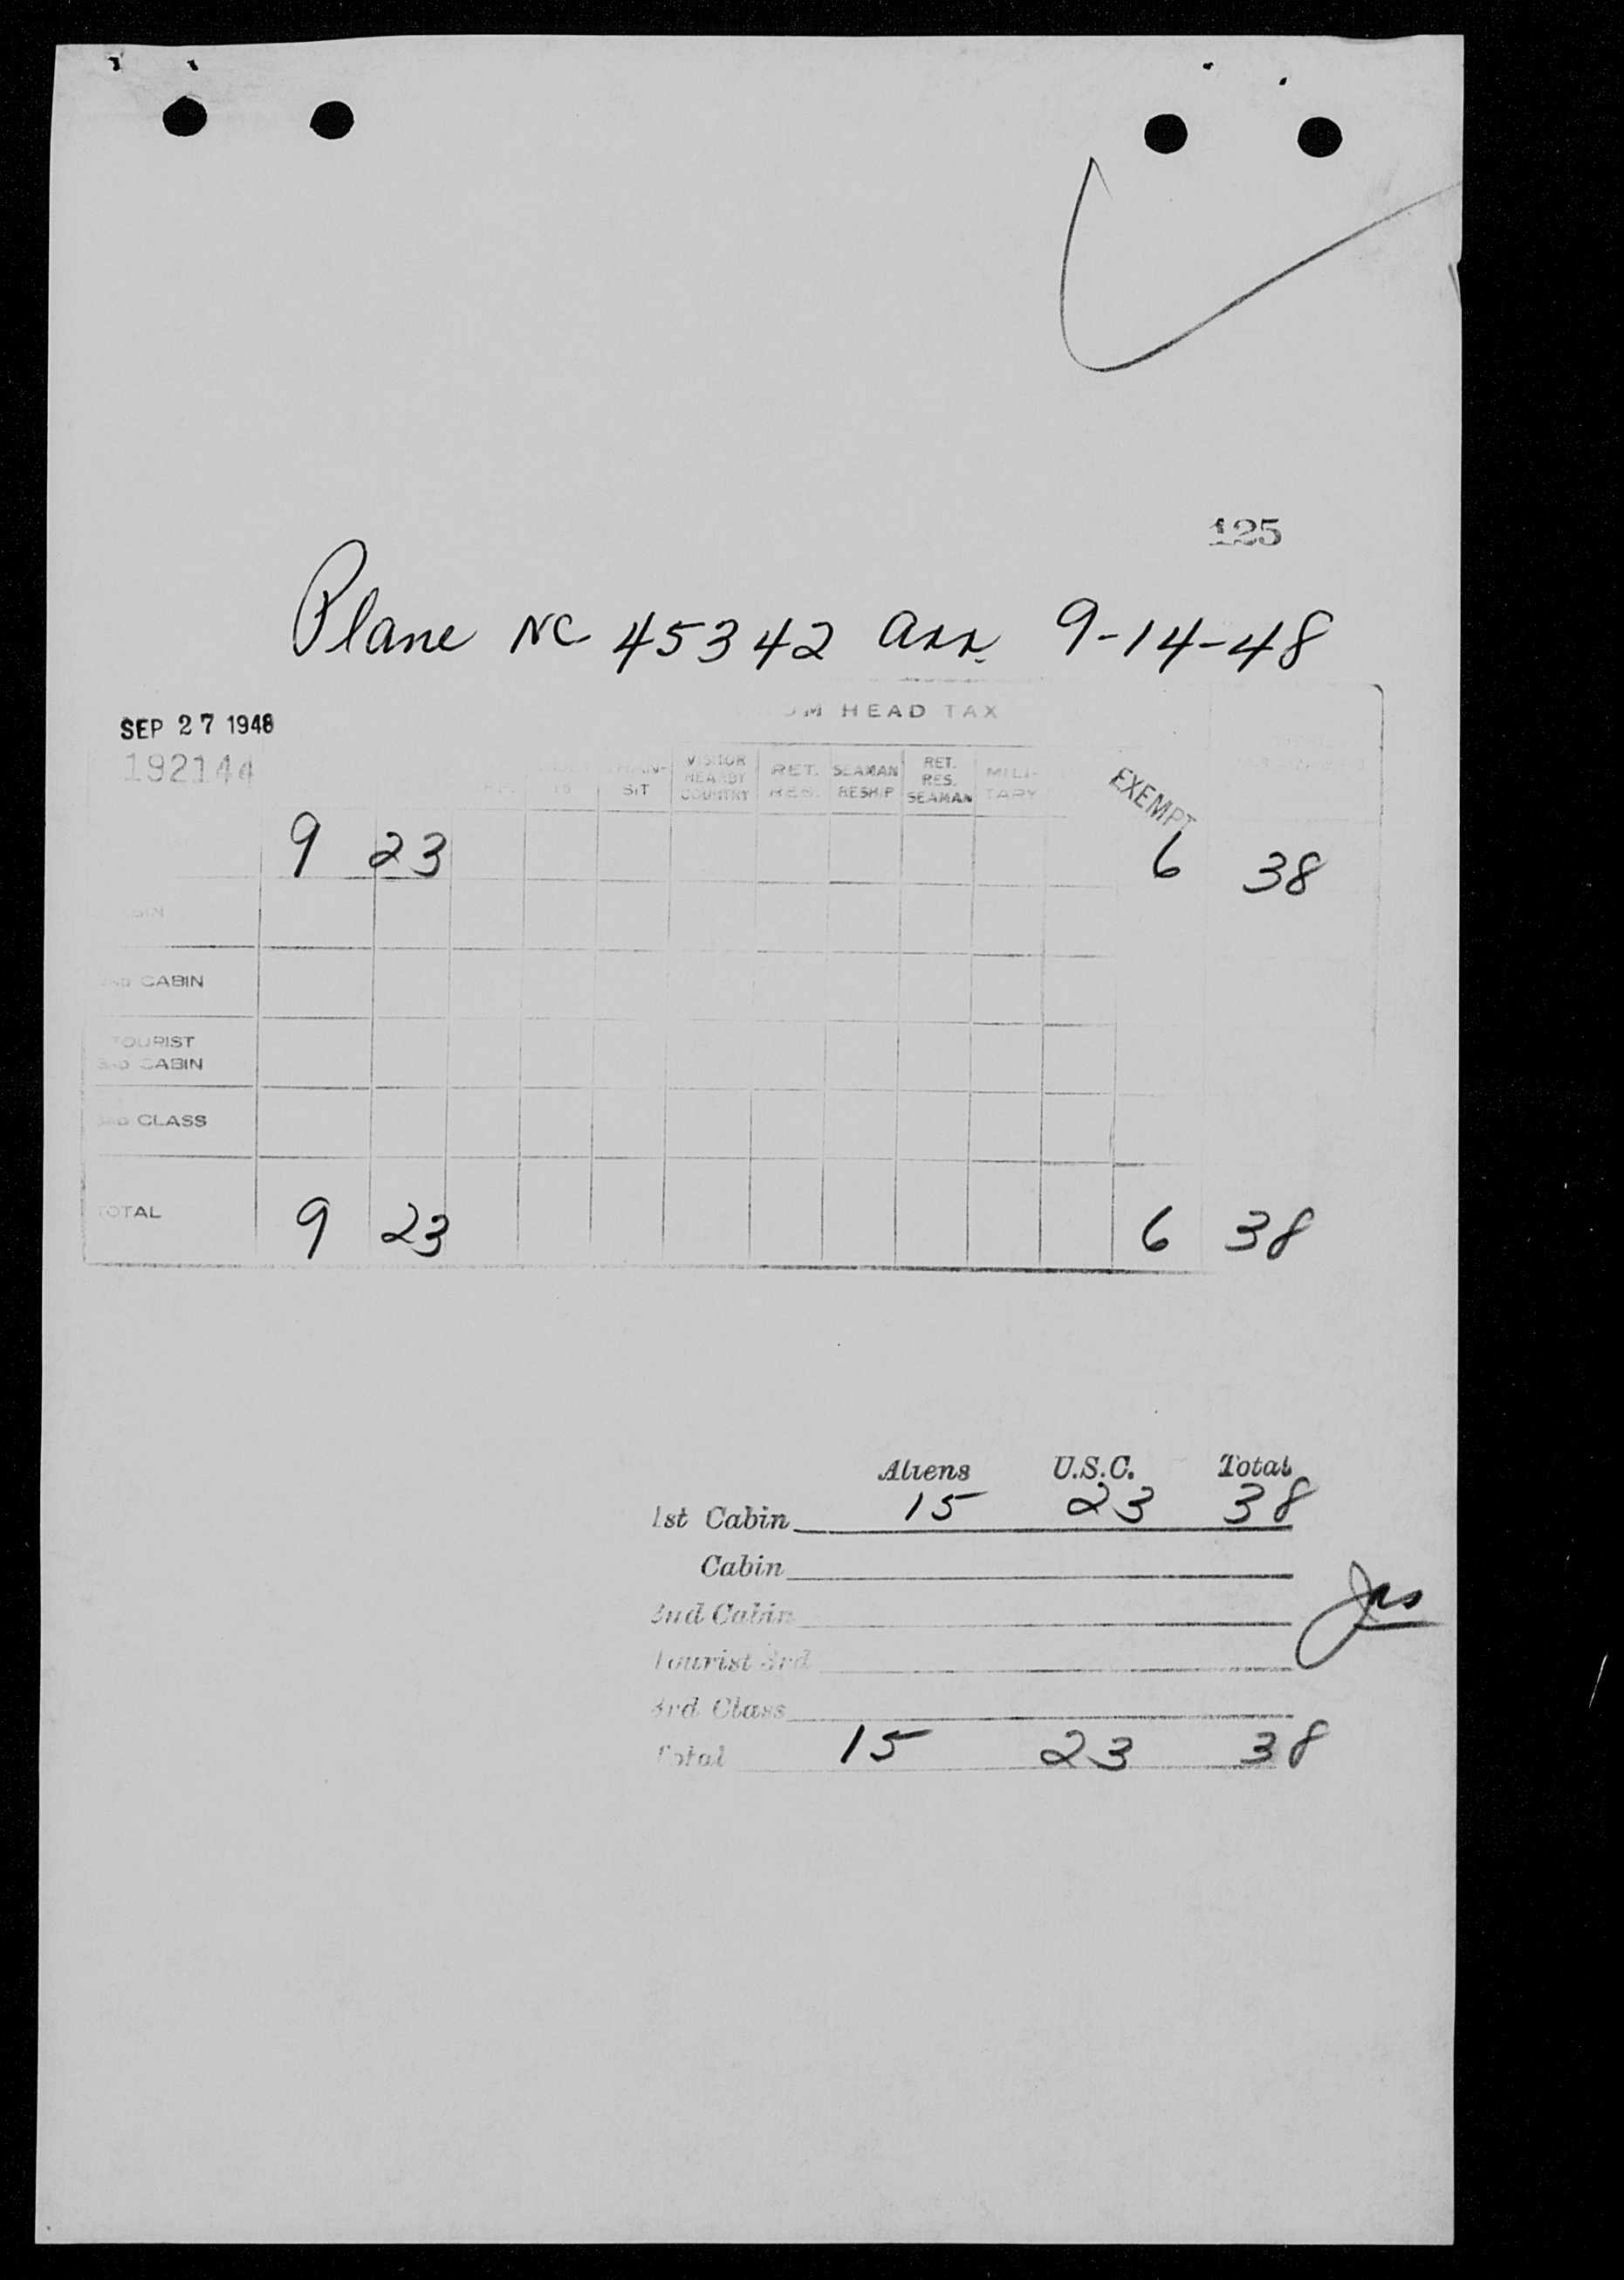 125
Plane NC 45342 arr. 9-14-48
SEP 27 1948
192144
HEAD TAX
SIT
VISITOR NEARBY COUNTRY
RET. RES.
SEAMAN RESHIP
RET. RES. SEAMAN
MILI-TARY
EXEMPT
9 23 6 38
CABIN
TOURIST
CABIN
CLASS
TOTAL 9 23 6 38
Aliens U.S.C. Total
1st Cabin 15 23 38
Cabin
2nd Cabin
Tourist 3rd
3rd Class
Total 15 23 38